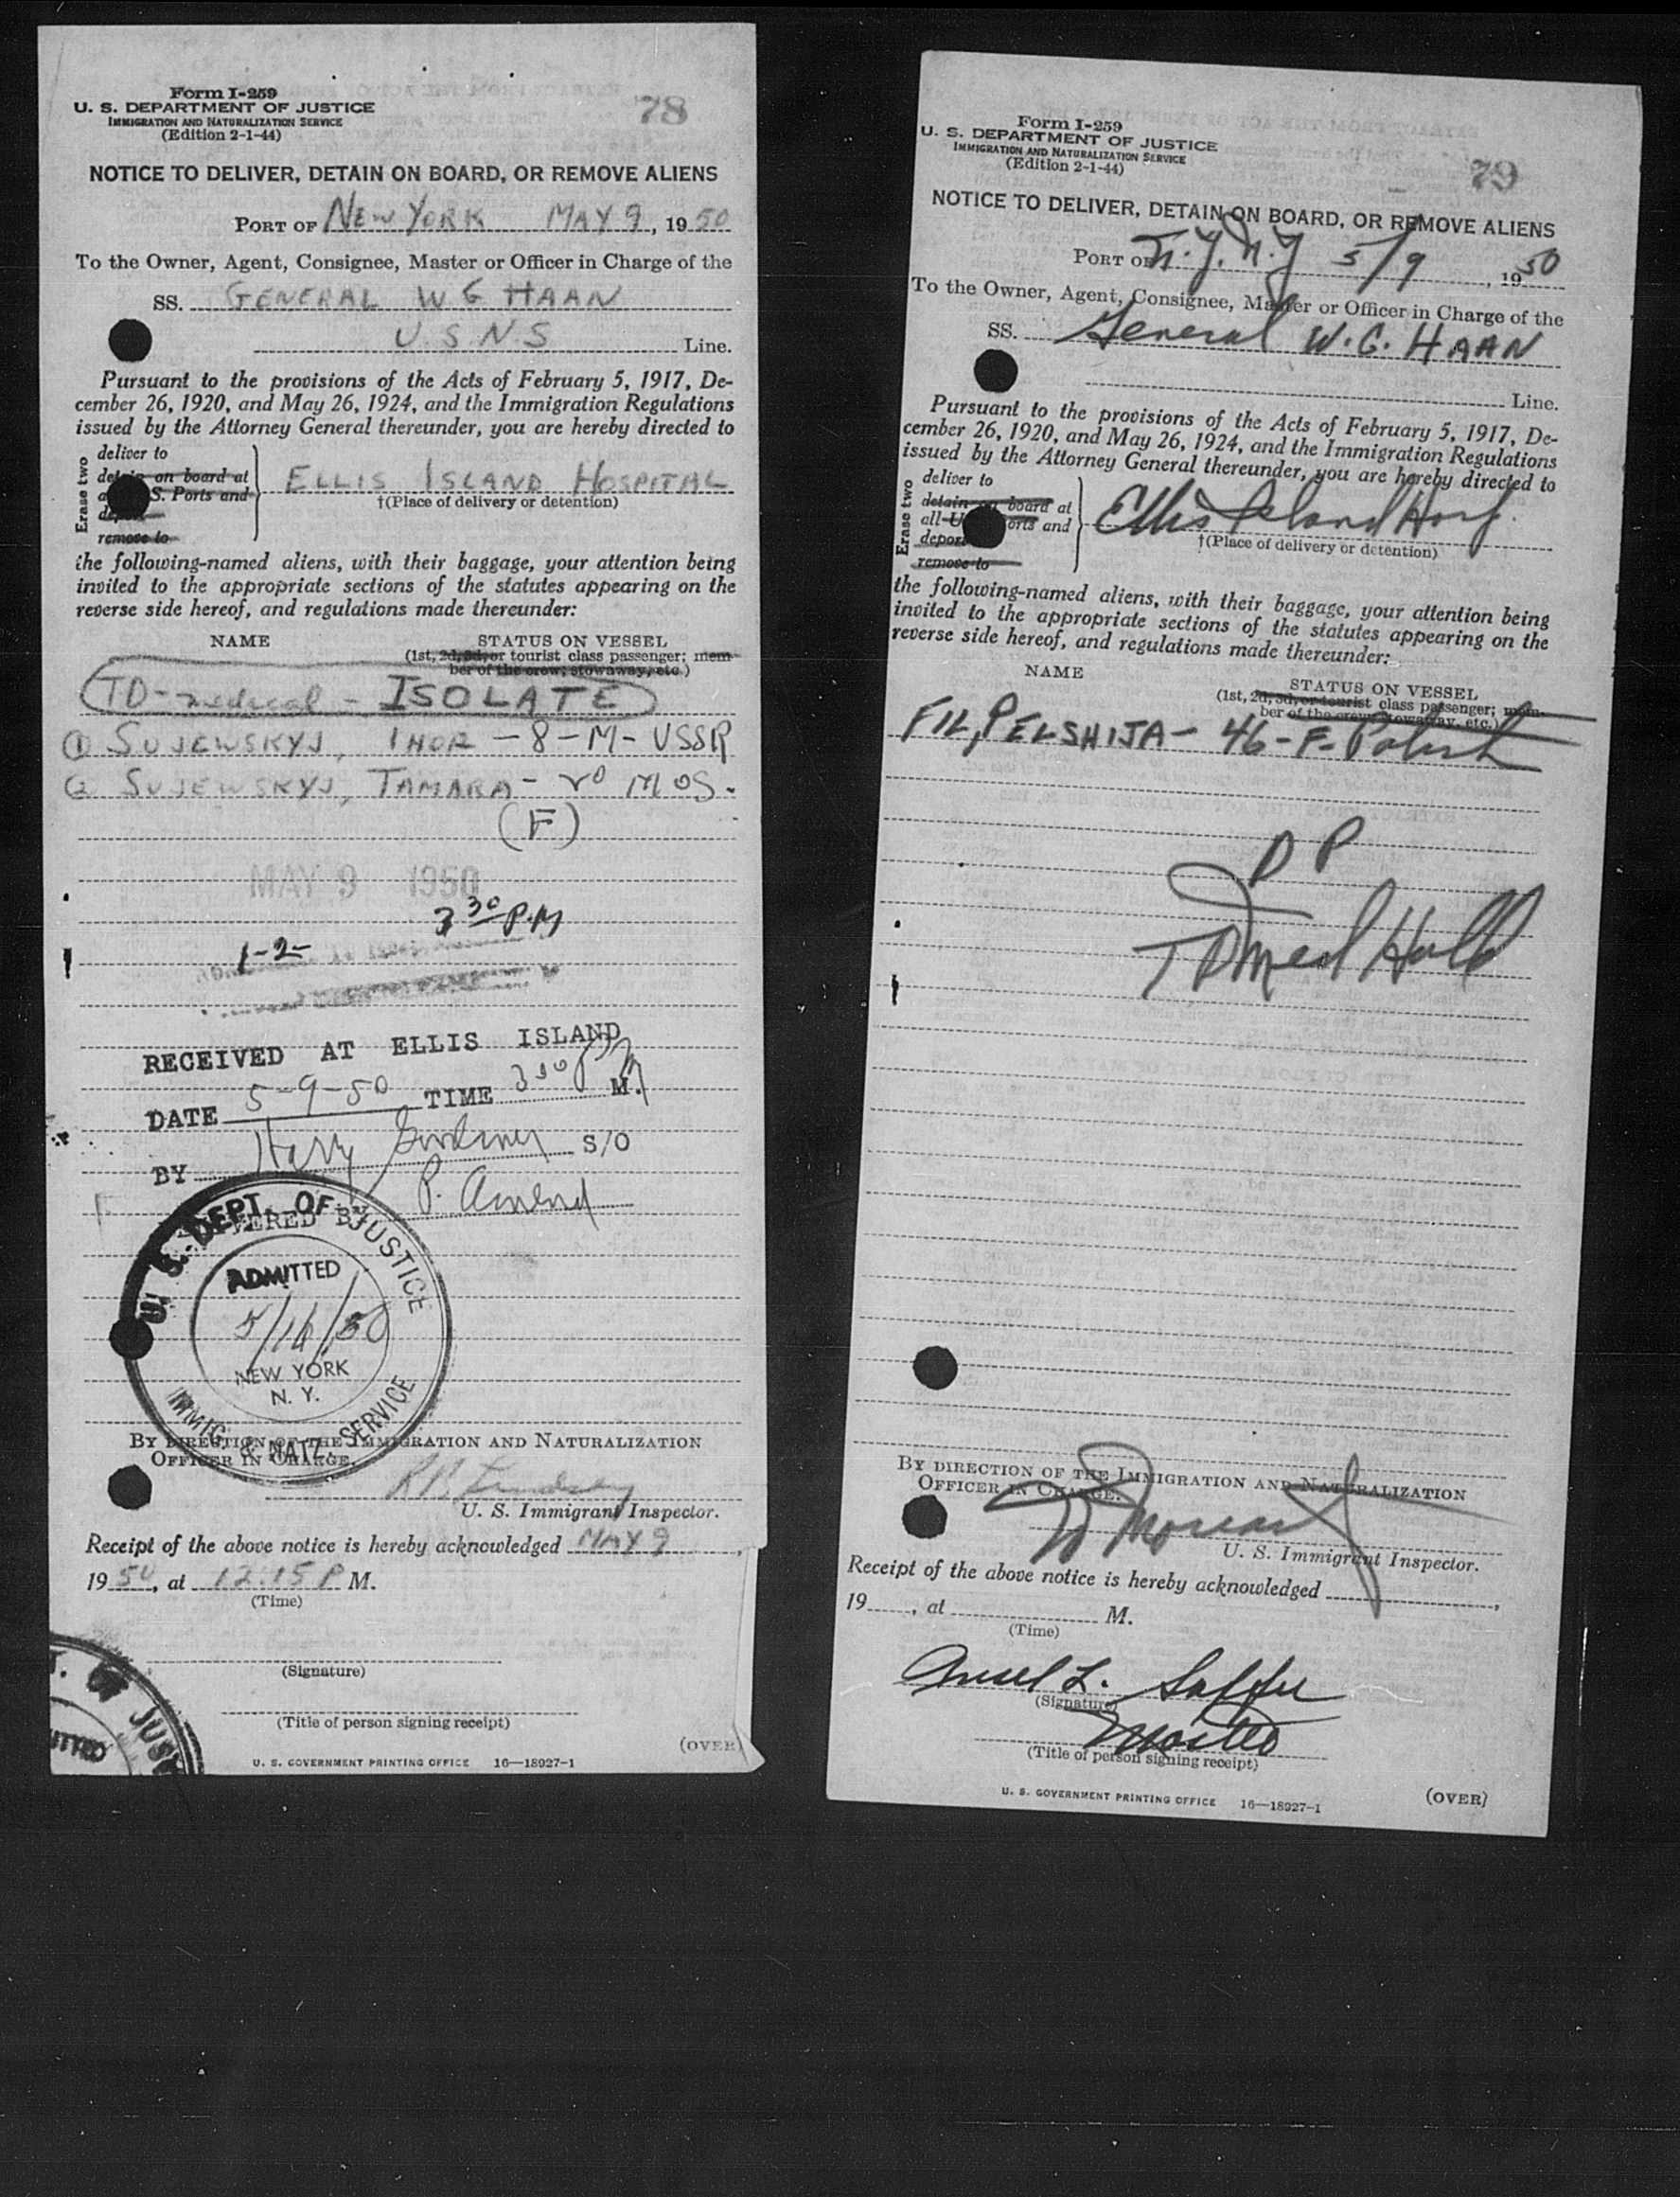 Form I-259
U. S. DEPARTMENT OF JUSTICE
IMMIGRATION AND NATURALIZATION SERVICE
(Edition 2-1-44)
78
NOTICE TO DELIVER, DETAIN ON BOARD, OR REMOVE ALIENS
PORT OF NEW YORK MAY 9, 1950
To the Owner, Agent, Consignee, Master or Officer in Charge of the
SS. GENERAL W G HAAN
U.S.N.S Line.
Pursuant to the provisions of the Acts of February 5, 1917, De-
cember 26, 1920, and May 26, 1924, and the Immigration Regulations
issued by the Attorney General thereunder, you are hereby directed to
Erase two
deliver to
on board at
S. Ports and
remove to
ELLIS ISLAND HOSPITAL
†(Place of delivery or detention)
the following-named aliens, with their baggage, your attention being
invited to the appropriate sections of the statutes appearing on the
reverse side hereof, and regulations made thereunder:
NAME STATUS ON VESSEL
(1st, 2d, 3d, or tourist class passenger; mem-
ber of the crew; stowaway, etc.)
TD - medical - ISOLATE
① SUJEWSKYJ, IHOR - 8 - M - USSR
② SUJEWSKYJ, TAMARA - 20 MOS.
(F)
MAY 9 1950
3 30 P.M
1-2-
RECEIVED AT ELLIS ISLAND
DATE 5-9-50 TIME 3 30 P M.
BY Harry S/O
P. Amend
DELIVERED BY
U. S. DEPT. OF JUSTICE
ADMITTED
5/16/50
NEW YORK
N. Y.
IMMIG. & NATZ. SERVICE
BY DIRECTION OF THE IMMIGRATION AND NATURALIZATION
OFFICER IN CHARGE.
U. S. Immigrant Inspector.
Receipt of the above notice is hereby acknowledged MAY 9,
1950, at 12:15 P M.
(Time)
(Signature)
(Title of person signing receipt)
(OVER)
U. S. GOVERNMENT PRINTING OFFICE 16—18927-1
Form I-259
U. S. DEPARTMENT OF JUSTICE
IMMIGRATION AND NATURALIZATION SERVICE
(Edition 2-1-44)
79
NOTICE TO DELIVER, DETAIN ON BOARD, OR REMOVE ALIENS
PORT OF N.Y. N.Y 5/9, 1950
To the Owner, Agent, Consignee, Master or Officer in Charge of the
SS. General W.G. HAAN
Line.
Pursuant to the provisions of the Acts of February 5, 1917, De-
cember 26, 1920, and May 26, 1924, and the Immigration Regulations
issued by the Attorney General thereunder, you are hereby directed to
Erase two
deliver to
detain on board at
all U orts and
depor
remove to
Ellis Island Hosp.
†(Place of delivery or detention)
the following-named aliens, with their baggage, your attention being
invited to the appropriate sections of the statutes appearing on the
reverse side hereof, and regulations made thereunder:
NAME
STATUS ON VESSEL
(1st, 2d, 3d, or tourist class passenger; mem-
ber of the crew; stowaway, etc.)
FIL, PELSHIJA - 46 - F - Polish
D P
TD Med Hold
BY DIRECTION OF THE IMMIGRATION AND NATURALIZATION
OFFICER IN CHARGE.
U. S. Immigrant Inspector.
Receipt of the above notice is hereby acknowledged ,
19 , at M.
(Time)
(Signature)
(Title of person signing receipt)
U. S. GOVERNMENT PRINTING OFFICE 16—18927-1
(OVER)